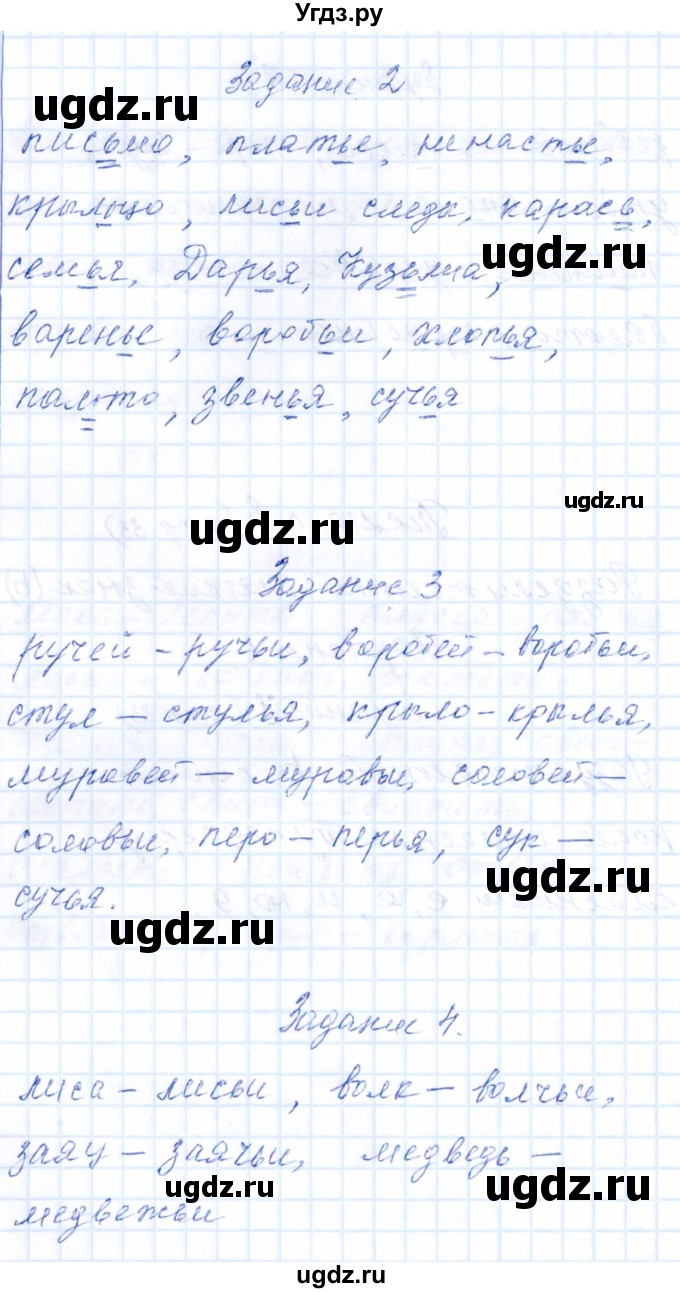 Угдз.ру
Задание 2
ugdz.ru
письмо, платье, ненастье,
крыльцо, лисьи следы, карась,
ugdz.ru
семья, Дарья, Кузьма,
варенье, воробьи, хлопья,
пальто, звенья, сучья
ugdz.ru
ugdz.ru
Задание 3
ручей – ручьи, воробей – воробьи,
стул – стулья, крыло – крылья,
муравей – муравьи, соловей –
соловьи, перо – перья, сук –
ugdz.ru
сучья.
ugdz.ru
Задание 4.
лиса – лисьи, волк – волчьи,
заяц – заячьи, медведь –
ugdz.ru
ugdz.ru
медвежьи
ugdz.ru